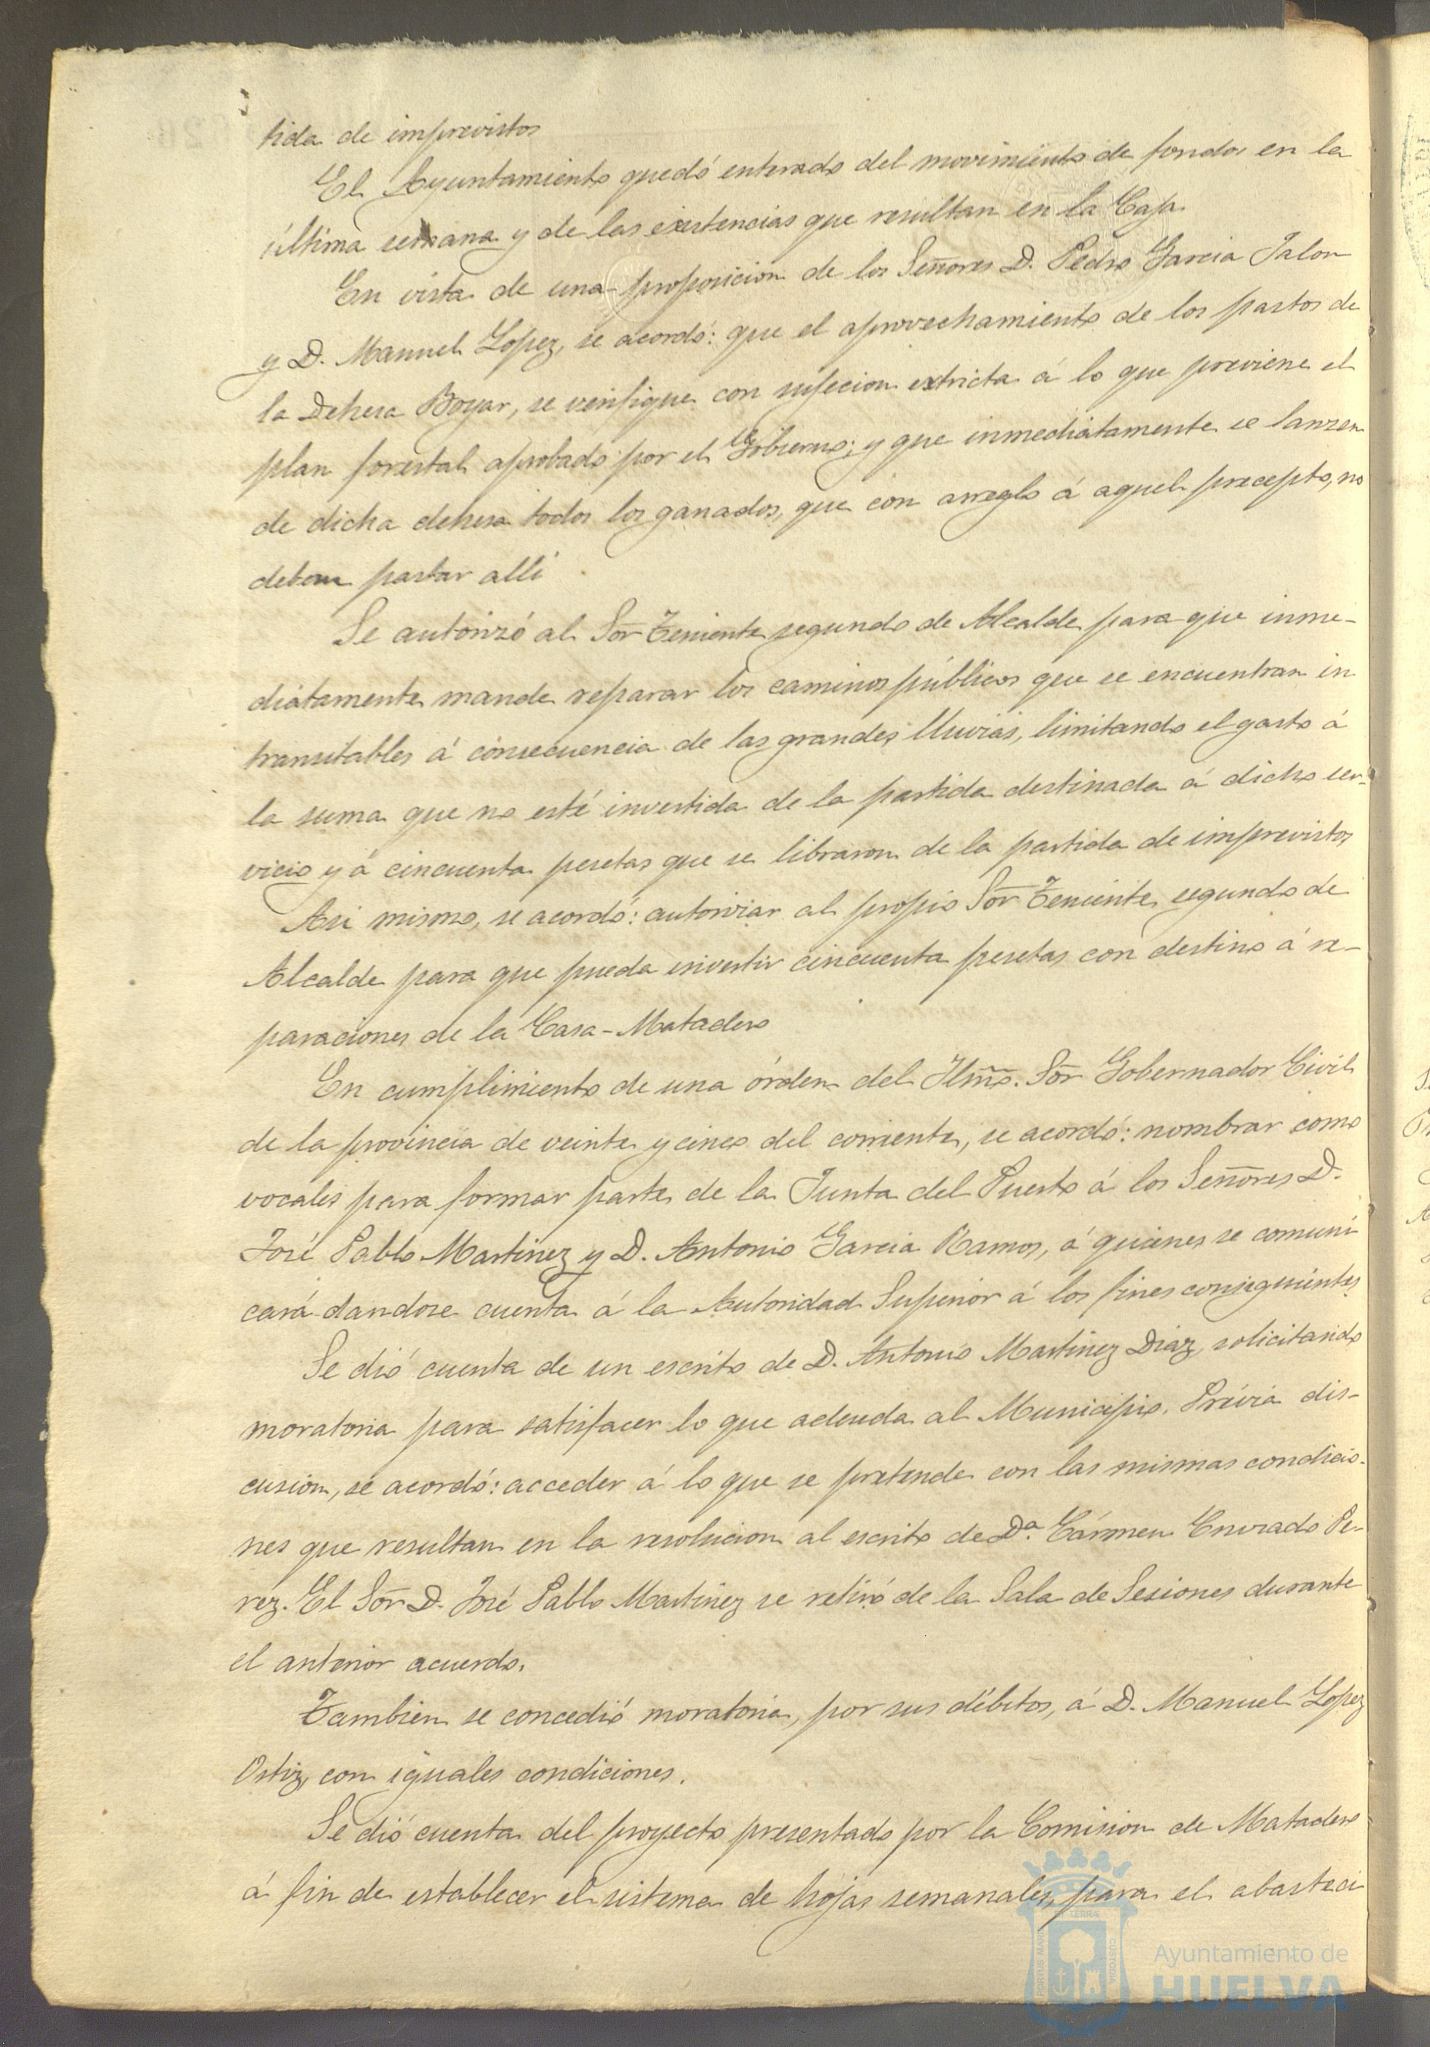 tida de imprevistos
El Ayuntamiento quedó enterado del movimiento de fondos en la
última semana y de las existencias que resultan en la Caja.
En vista de una proposicion de los Señores D. Pedro Garcia Jalon
y D. Manuel Lopez, se acordó: que el aprovechamiento de los pastos de
la Dehesa Boyar, se verifique con sujecion extricta á lo que previene el
plan forestal aprobado por el Gobierno; y que inmediatamente se lanzen
de dicha dehesa todos los ganados, que con arreglo á aquel precepto, no
deben pastar alli
Se autorizó al Sor Teniente segundo de Alcalde para que inme-
diatamente mande reparar los caminos públicos que se encuentran in
transitables á consecuencia de las grandes lluvias, limitando el gasto á
la suma que no esté invertida de la partida destinada á dicho ser-
vicio y á cincuenta pesetas que se libraron de la partida de imprevistos
Asi mismo, se acordó: autorizar al propio Sor Teniente segundo de
Alcalde para que pueda invertir cincuenta pesetas con destino á re-
paraciones de la Casa-Matadero
En cumplimiento de una órden del Iltmo. Sor Gobernador Civil
de la provincia de veinte y cinco del corriente, se acordó: nombrar como
vocales para formar parte de la Junta del Puerto á los Señores D.
José Pablo Martinez y D. Antonio Garcia Ramos, á quienes se comuni
cará dandose cuenta á la Autoridad Superior á los fines consiguientes
Se dió cuenta de un escrito de D. Antonio Martinez Diaz, solicitando
moratoria para satisfacer lo que adeuda al Municipio. Prévia dis-
cusion, se acordó: acceder á lo que se pretende con las mismas condicio-
nes que resultan en la resolucion al escrito de Da. Cármen Pe-
rez. El Sor D. José Pablo Martinez se retiró de la Sala de Sesiones durante
el anterior acuerdo.
Tambien se concedió moratoria, por sus débitos, á D. Manuel Lopez
Ortiz, con iguales condiciones.
Se dió cuenta del proyecto presentado por la Comision de Matadero
á fin de establecer el sistema de hojas semanales, para el abasteci
Ayuntamiento de
HUELVA